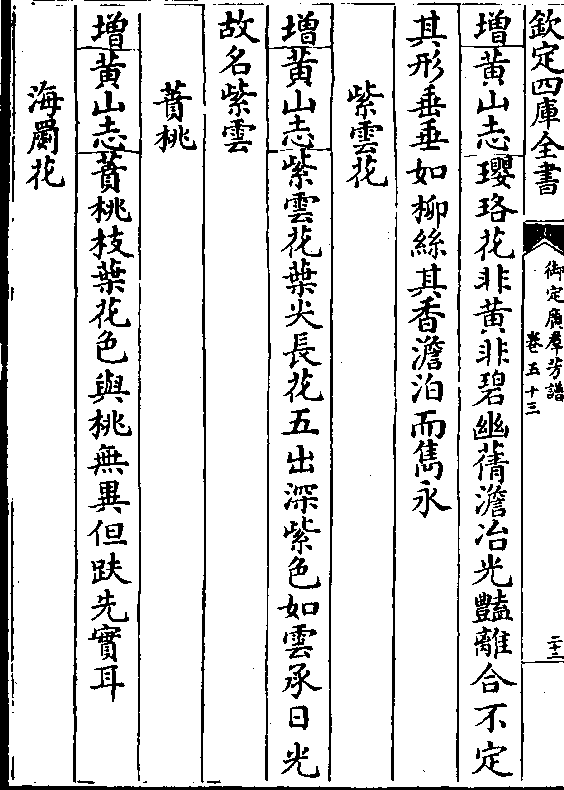 欽定四庫全書
御定廣羣芳譜
卷五十三
二十二
增黃山志瓔珞花非黃非碧幽蒨澹冶光豔離合不定
其形垂垂如柳絲其香澹泊而雋永
紫雲花
增黃山志紫雲花葉尖長花五出深紫色如雲承日光
故名紫雲
蕡桃
增黃山志蕡桃枝葉花色與桃無異但趺先實耳
海䕽花